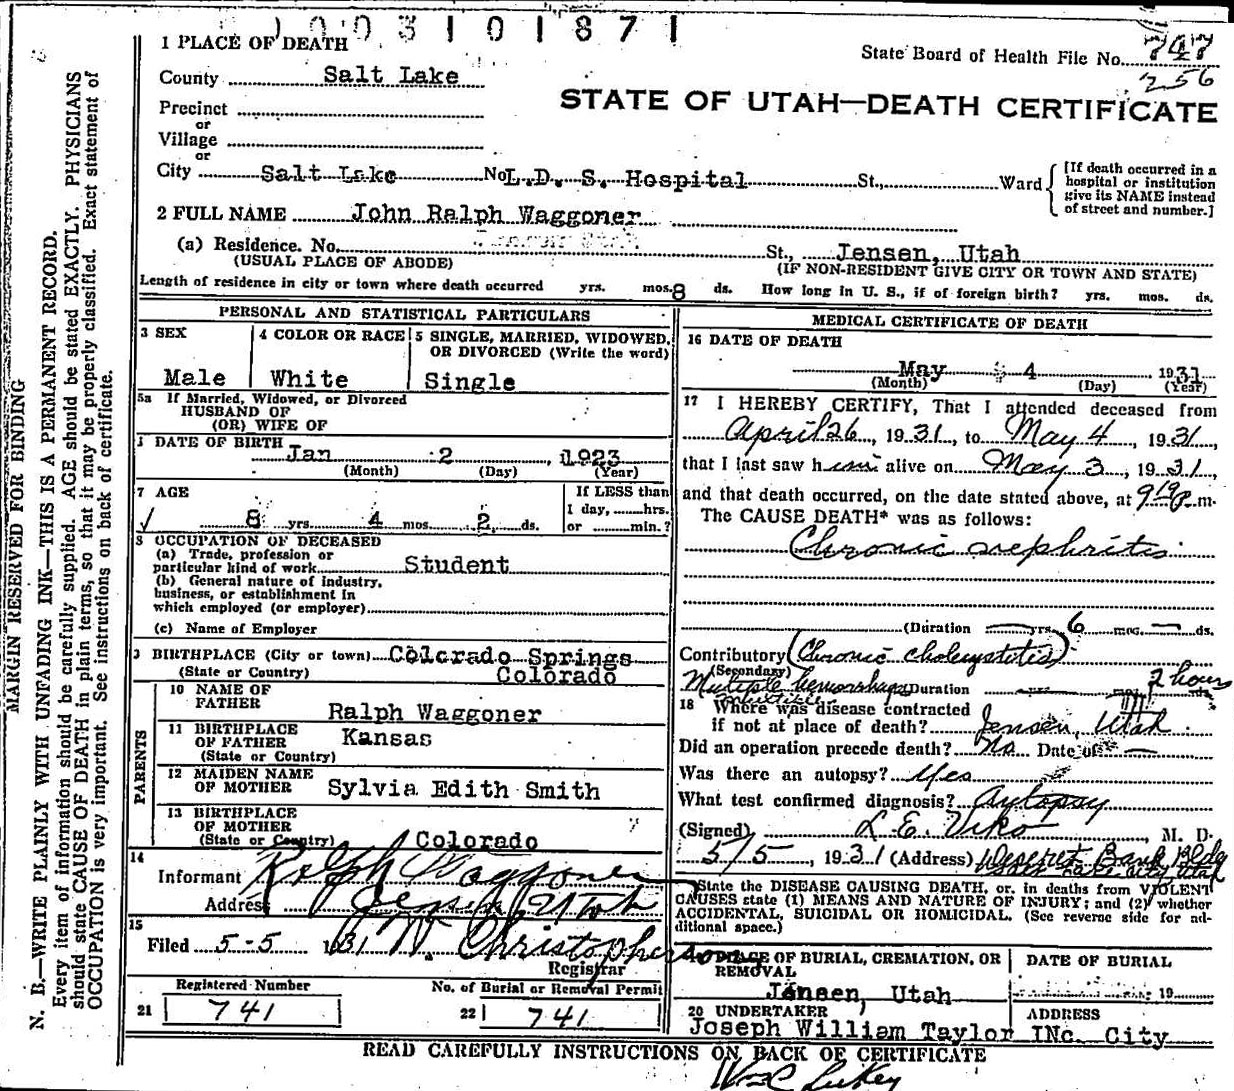 1003101871
1 PLACE OF DEATH
State Board of Health File No. 747
256
County Salt Lake
STATE OF UTAH—DEATH CERTIFICATE
Precinct
or
Village
or
City Salt Lake No. L.D. S. Hospital St., Ward
[If death occurred in a hospital or institution give its NAME instead of street and number.]
2 FULL NAME John Ralph Waggoner
(a) Residence. No. St., Jensen, Utah
(USUAL PLACE OF ABODE) (IF NON-RESIDENT GIVE CITY OR TOWN AND STATE)
Length of residence in city or town where death occurred yrs. mos. 8 ds. How long in U. S., if of foreign birth? yrs. mos. ds.
PERSONAL AND STATISTICAL PARTICULARS
3 SEX 4 COLOR OR RACE 5 SINGLE, MARRIED, WIDOWED, OR DIVORCED (Write the word)
Male White Single
5a If Married, Widowed, or Divorced
HUSBAND OF
(OR) WIFE OF
DATE OF BIRTH Jan 2, 1923
(Month) (Day) (Year)
7 AGE If LESS than
1 day, hrs.
8 yrs. 4 mos. 2 ds. or min.?
8 OCCUPATION OF DECEASED
(a) Trade, profession or
particular kind of work Student
(b) General nature of industry,
business, or establishment in
which employed (or employer)
(c) Name of Employer
9 BIRTHPLACE (City or town) Colorado Springs
(State or Country) Colorado
PARENTS
10 NAME OF
FATHER Ralph Waggoner
11 BIRTHPLACE
OF FATHER Kansas
(State or Country)
12 MAIDEN NAME
OF MOTHER Sylvia Edith Smith
13 BIRTHPLACE
OF MOTHER
(State or Country) Colorado
14
Informant Ralph Waggoner
Address Jensen, Utah
15
Filed 5-5 1931 W. Christopherson
Registrar
Registered Number No. of Burial or Removal Permit
21 741 22 741
MEDICAL CERTIFICATE OF DEATH
16 DATE OF DEATH
May 4 1931
(Month) (Day) (Year)
17 I HEREBY CERTIFY, That I attended deceased from
April 26, 1931, to May 4, 1931,
that I last saw him alive on May 3, 1931,
and that death occurred, on the date stated above, at 9 19 P.m.
The CAUSE DEATH* was as follows:
Chronic nephritis
(Duration — yrs. 6 mos. — ds.
Contributory (Chronic cholecystitis)
(Secondary) 2 hours
Multiple hemorrhages Duration
18 Where was disease contracted
if not at place of death? Jensen, Utah
Did an operation precede death? No Date of —
Was there an autopsy? Yes
What test confirmed diagnosis? Autopsy
(Signed) L. E. Viko M. D.
5/5, 1931 (Address) Deseret Bank Bldg
Salt Lake City, Utah
State the DISEASE CAUSING DEATH, or, in deaths from VIOLENT
CAUSES state (1) MEANS AND NATURE OF INJURY; and (2) whether
ACCIDENTAL, SUICIDAL OR HOMICIDAL. (See reverse side for ad-
ditional space.)
PLACE OF BURIAL, CREMATION, OR DATE OF BURIAL
REMOVAL
Jensen, Utah 19
20 UNDERTAKER ADDRESS
Joseph William Taylor INc. City
READ CAREFULLY INSTRUCTIONS ON BACK OF CERTIFICATE
MARGIN RESERVED FOR BINDING
N. B.—WRITE PLAINLY WITH UNFADING INK—THIS IS A PERMANENT RECORD.
Every item of information should be carefully supplied. AGE should be stated EXACTLY. PHYSICIANS
should state CAUSE OF DEATH in plain terms, so that it may be properly classified. Exact statement of
OCCUPATION is very important. See instructions on back of certificate.